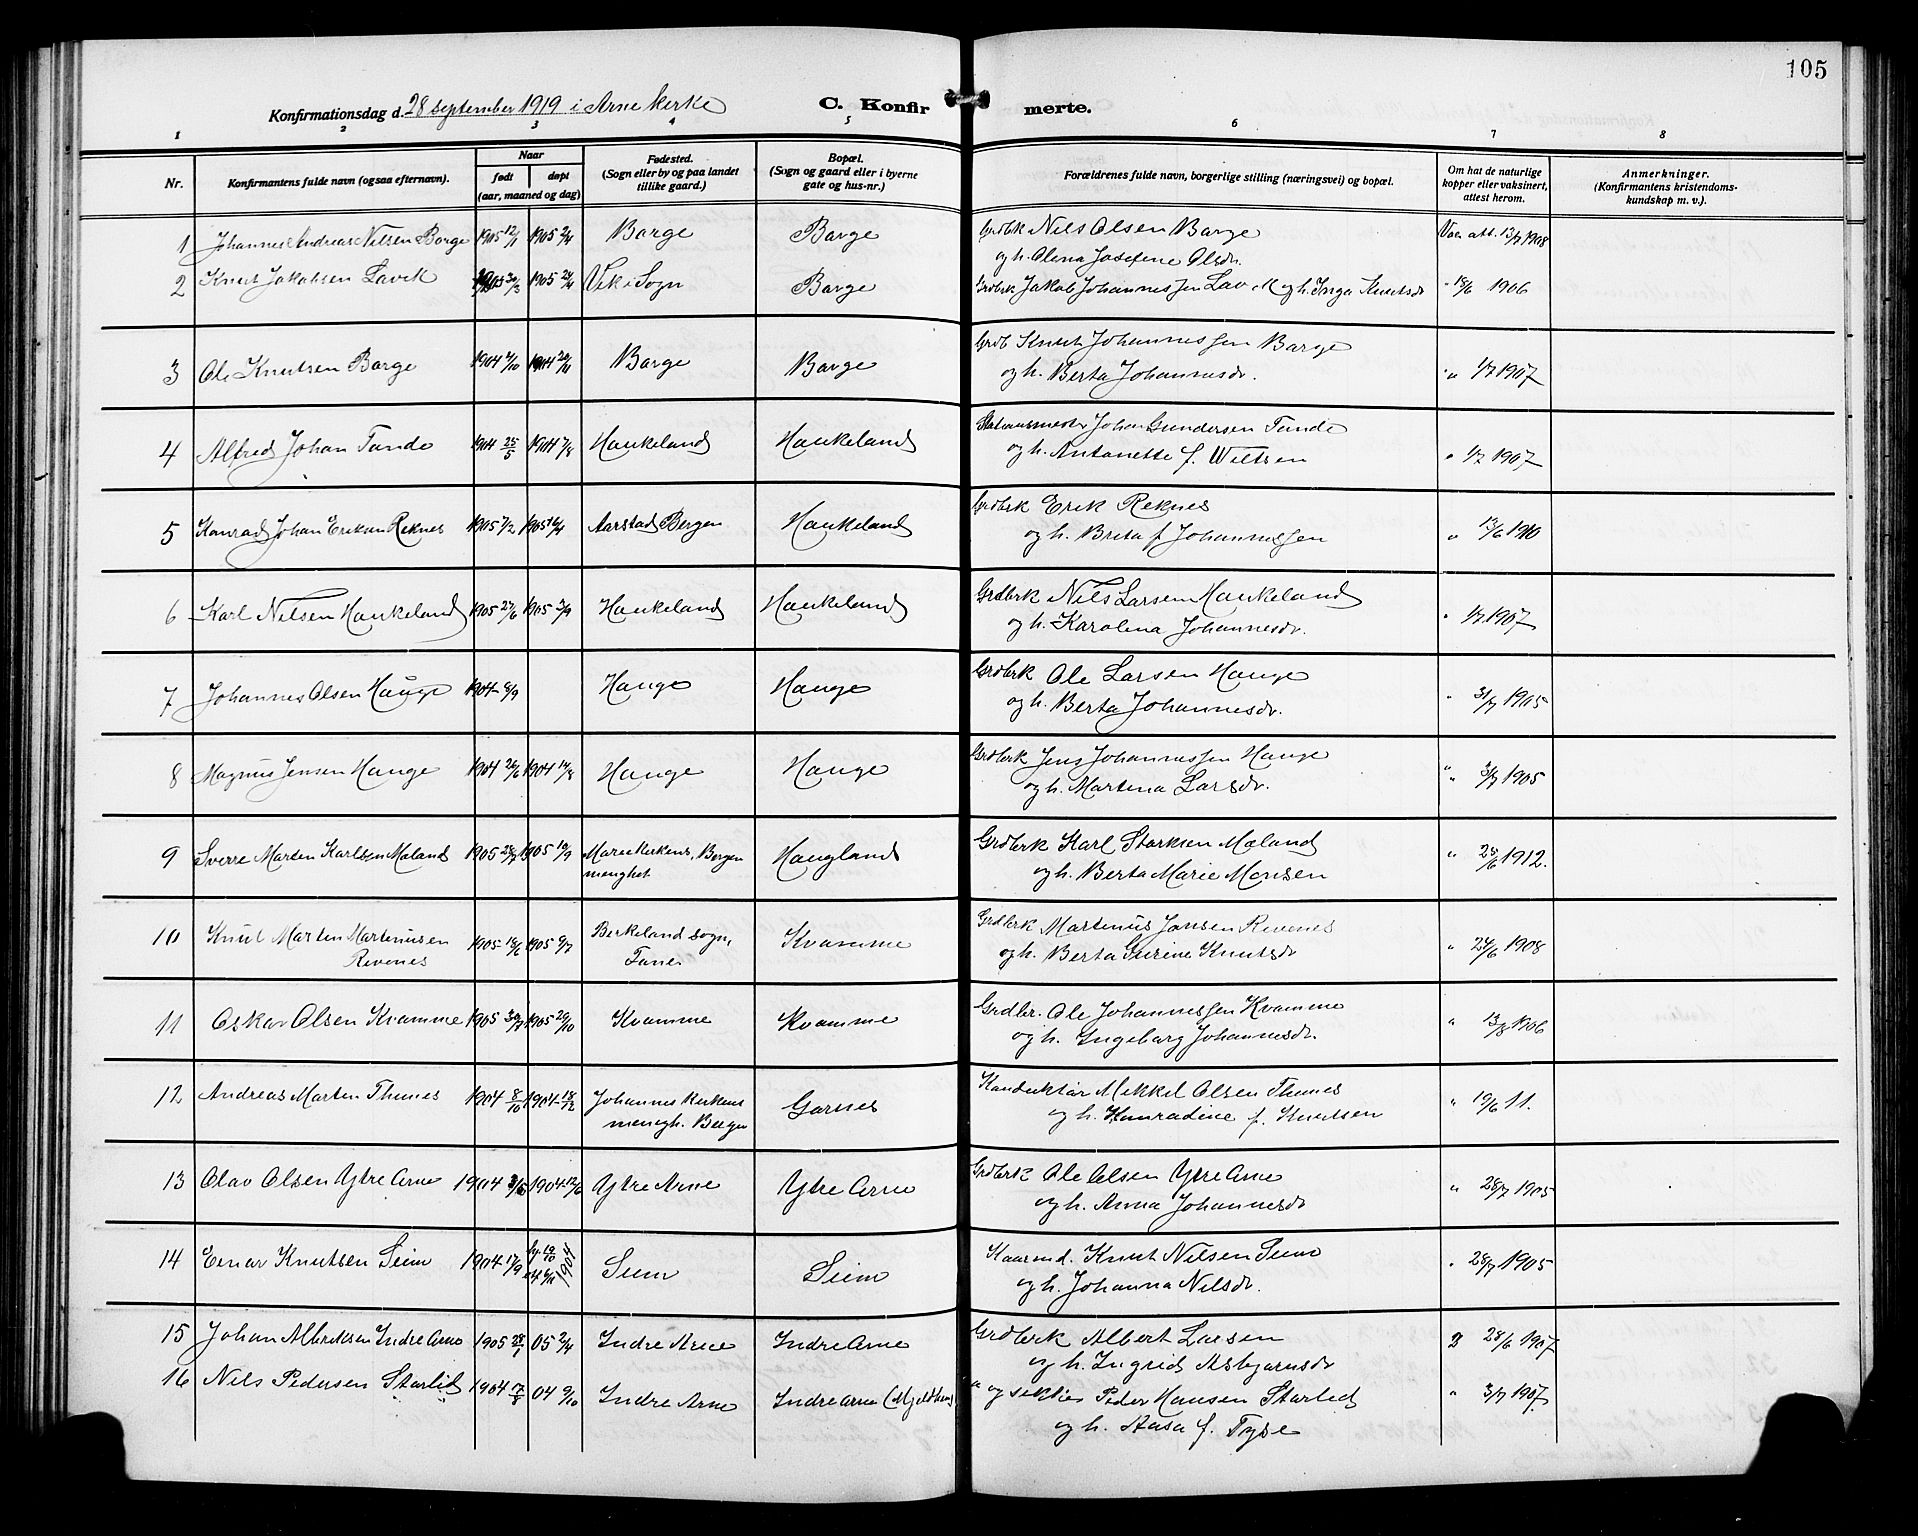 105
Konfirmationsdag d. 28 september 1919 i Arne kirke
C. Konfirmerte.
1 2 3 4 5 6 7 8
Nr.
Konfirmantens fulde navn (ogsaa efternavn).
Naar
født døpt
(aar, maaned og dag)
Fødested.
(Sogn eller by og paa landet
tillike gaard.)
Bopæl.
(Sogn og gaard eller i byerne
gate og hus-nr.)
Forældrenes fulde navn, borgerlige stilling (næringsvei) og bopæl.
Om hat de naturlige
kopper eller vaksinert,
attest herom.
Anmerkninger.
(Konfirmantens kristendoms-
kundskap m. v.)
1 Johannes Andreas Nilsen Borge 1905 12/1 1905 2/4 Borge Borge Grdbrk Nils Olsen Borge Vac. att. 13/7 1908
og h. Olina Josefine Olsdr.
2 Knut Jakobsen Lavik 1905 24/4 Vik i Sogn Borge Grdbrk Jakob Johannessen Lavik og h. Inga Knutsdr " 18/6 1906
3 Ole Knutsen Borge 1904 1904 Borge Borge Grdb Knut Johannessen Borge
og h. Berta Johannesdr. " 1/7 1907
4 Alfred Johan Tunde 1904 25/5 1904 7/8 Haukeland Haukeland Stationsmester Johan Gundersen Tunde
og h. Antonette f. Wiltsen " 1/7 1907
5 Konrad Johan Erikson Reknes 1905 7/2 1905 16/4 Aarstad Bergen Haukeland Grdbrk Erik Reknes
og h. Brita f Johannessen " 13/6 1910
6 Karl Nilsen Haukeland 1905 27/6 1905 3/9 Haukeland Haukeland Grdbrk Nils Larsen Haukeland
og h. Karolina Johannesdr. " 1/7 1907
7 Johannes Olsen Hauge 1904 Hauge Hauge Grdbrk Ole Larsen Hauge
og h. Berta Johannesdr. " 31/7 1905
8 Magnus Jensen Hauge 1904 26/6 1904 14/8 Hauge Hauge Grdbrk Jens Johannessen Hauge
og h. Martina Larsdr. " 31/7 1905
9 Sverre Martin Karlsen Mæland 1905 1905 10/9 Mariekirkens, Bergen Haugland Grdbrk Karl Storksen Mæland
menghet og h. Berta Marie Monsen " 25/6 1912.
10 Knut Martin Martinussen 1905 18/6 1905 9/7 Birkeland sogn, Kvamme Grdbrk Martinus Jonsen Revenes
Revenes Fane og h. Berta Gurine Knutsdr " 24/6 1908
11 Oskar Olsen Kvamme 1905 30/9 1905 29/10 Kvamme Kvamme Grdbr. Ole Johannessen Kvamme
og h. Ingeborg Johannesdr. " 13/8 1906
12 Andreas Martin Thunes 1904 8/10 1904 18/12 Johanneskirkens Garnes Konduktør Mikkel Olsen Thunes
menigh. Bergen og h. Konradine f. Knutsen " 19/6 11.
13 Olav Olsen Ytre Arne 1904 1904 12/6 Ytre Arne Ytre Arne Grdbrk Ole Olsen Ytre Arne
og h. Anna Johannesdr " 28/7 1905
14 Einar Knutsen Seim 1904 17/9 1904 Seim Seim Kaarmd. Knut Nilsen Seim
og h. Johanna Nilsdr. " 28/7 1905
15 Johan Albriktsen Indre Arne 1905 28/1 05 2/4 Indre Arne Indre Arne Grdbrk Albert Larsen 28/6 1907
og h. Ingrid Asbjørnsdr
16 Nils Pedersen Storlid 1904 17/8 04 9/10 Indre Arne Indre Arne (Mjeldheim) " og Peder Hansen Storlid " 3/7 1907
og h. Aasa f. Tysse